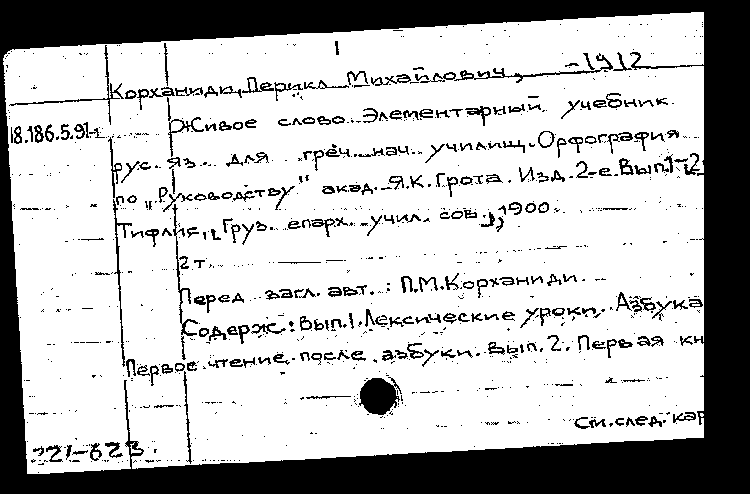 1
Корханиди, Перикл Михайлович, -1912
18.186.5.91-1
Живое слово. Элементарный учебник
рус. яз. для греч. нач. училищ. Орфография
по "Руководству" акад. Я.К. Грота. Изд. 2-е. Вып. 1-2
Тифлис, Груз. епарх. учил. сов., 1900.
2 т.
Перед загл. авт.: П.М. Корханиди.
Содерж.: Вып. 1. Лексические уроки. Азбука
Первое чтение после азбуки. Вып. 2. Первая кн
См. след. кар
221-623.